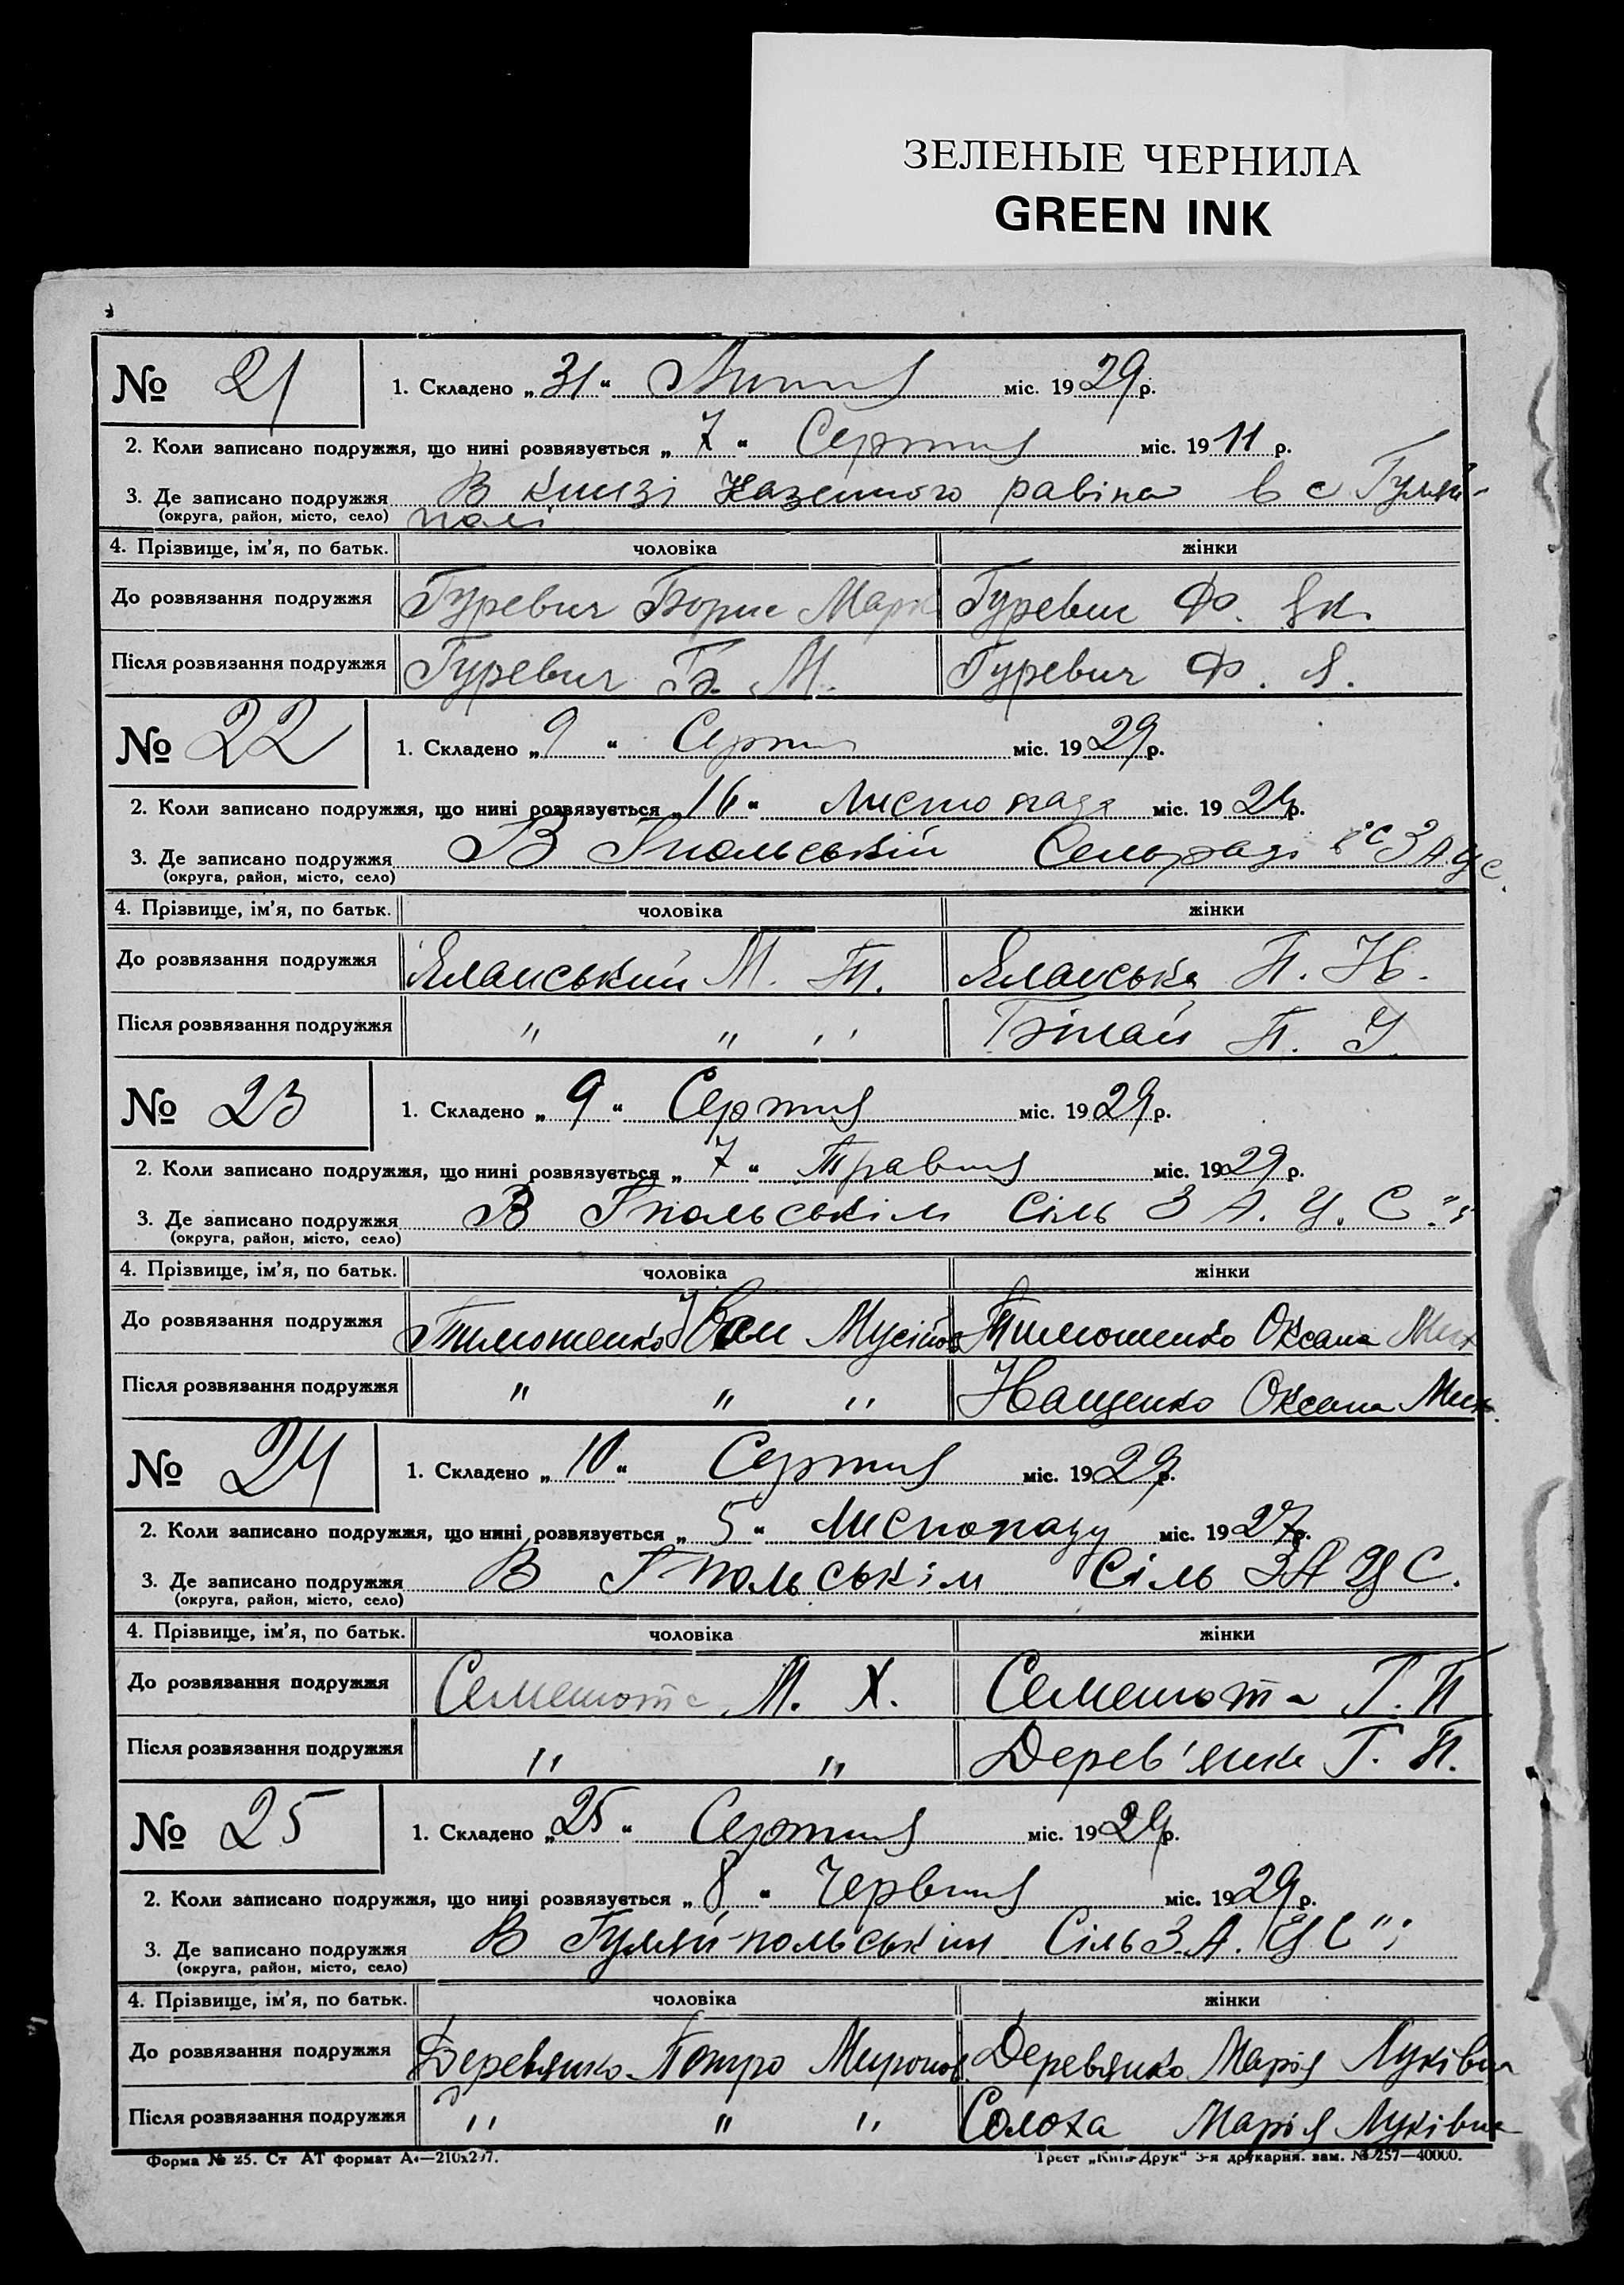 ЗЕЛЕНЫЕ ЧЕРНИЛА
GREEN INK
№ 21
1. Складено „31“ Липня міс. 1929 р.
2. Коли записано подружжя, що нині розвязується „7“ Серпня міс. 1911 р.
3. Де записано подружжя В книзі Казенного равіна в с Гуляй-
(округа, район, місто, село) полі
4. Прізвище, ім'я, по батьк. чоловіка жінки
До розвязання подружжя Гуревич Борис Марк Гуревич Ф. Як.
Після розвязання подружжя Гуревич Б. М. Гуревич Ф. Я.
№ 22
1. Складено „9“ Серпня міс. 1929 р.
2. Коли записано подружжя, що нині розвязується „16“ Листопада міс. 19 р.
3. Де записано подружжя В Гпольській Сельраді ЗАЦС.
(округа, район, місто, село)
4. Прізвище, ім'я, по батьк. чоловіка жінки
До розвязання подружжя Яланський М. Т. Яланська П.
Після розвязання подружжя " " " П.
№ 23
1. Складено „9“ Серпня міс. 1929 р.
2. Коли записано подружжя, що нині розвязується „7“ Травня міс. 1929 р.
3. Де записано подружжя В Гпольськім Сіль З А. Ц. С."і
(округа, район, місто, село)
4. Прізвище, ім'я, по батьк. чоловіка жінки
До розвязання подружжя Тимошенко Іван Мусійов Тимошенко Оксана Мих
Після розвязання подружжя " " " Нащенко Оксана Мих.
№ 24
1. Складено „10“ Серпня міс. 1929 р.
2. Коли записано подружжя, що нині розвязується „5“ Листопаду міс. 1927 р.
3. Де записано подружжя В Гпольськім Сіль ЗАЦС.
(округа, район, місто, село)
4. Прізвище, ім'я, по батьк. чоловіка жінки
До розвязання подружжя Семенота М. Х. Семенота Г. П
Після розвязання подружжя " " Дерев'янко Г. П.
№ 25
1. Складено „25“ Серпня міс. 1929 р.
2. Коли записано подружжя, що нині розвязується „8“ Червня міс. 1929 р.
3. Де записано подружжя В Гуляй-польськім Сіль З.А.ЦС"і
(округа, район, місто, село)
4. Прізвище, ім'я, по батьк. чоловіка жінки
До розвязання подружжя Деревянко Петро Миронов. Деревянко Марія Луківна
Після розвязання подружжя " " " Солоха Марія Луківна
Форма № 25. Ст АТ формат А4—210х297. Трест „Київ-Друк“ 3-я друкарня. зам. № 257—40000.